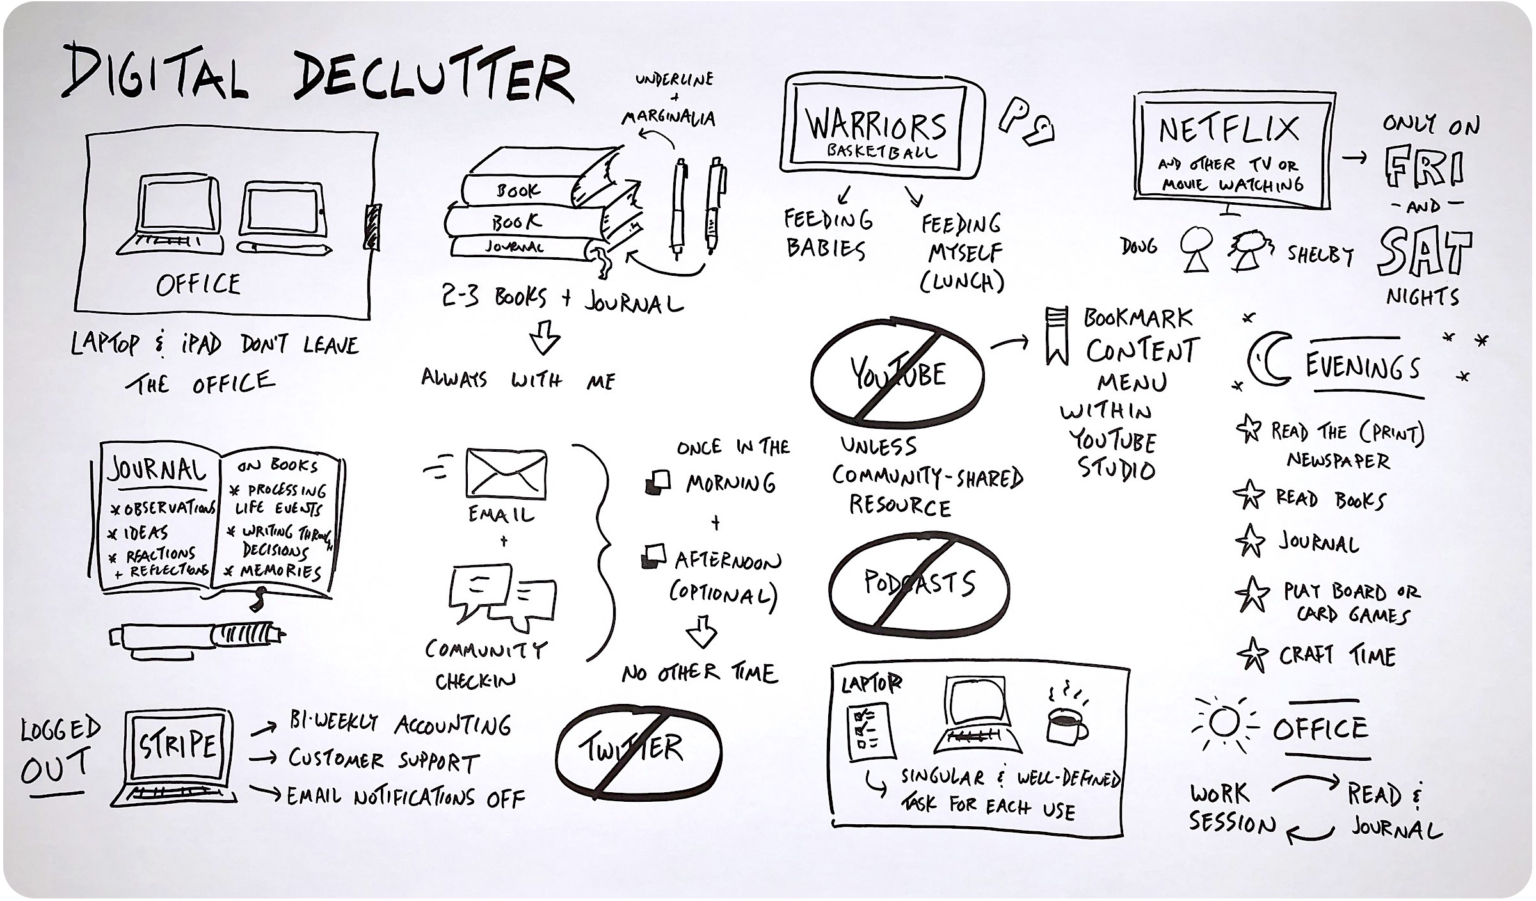 DIGITAL DECLUTTER
OFFICE
LAPTOP & iPAD DON'T LEAVE
THE OFFICE
UNDERLINE
+
MARGINALIA
BOOK
BOOK
JOURNAL
2-3 BOOKS + JOURNAL
ALWAYS WITH ME
WARRIORS
BASKETBALL
FEEDING
BABIES
FEEDING
MYSELF
(LUNCH)
NETFLIX
AND OTHER TV OR
MOVIE WATCHING
DOUG
SHELBY
ONLY ON
FRI
-AND-
SAT
NIGHTS
YOUTUBE
UNLESS
COMMUNITY-SHARED
RESOURCE
BOOKMARK
CONTENT
MENU
WITHIN
YOUTUBE
STUDIO
EVENINGS
READ THE (PRINT)
NEWSPAPER
READ BOOKS
JOURNAL
PLAY BOARD OR
CARD GAMES
CRAFT TIME
JOURNAL
* OBSERVATIONS
* IDEAS
* REACTIONS
+ REFLECTIONS
ON BOOKS
* PROCESSING
LIFE EVENTS
* WRITING THROUGH
DECISIONS
* MEMORIES
EMAIL
+
COMMUNITY
CHECK-IN
ONCE IN THE
MORNING
+
AFTERNOON
(OPTIONAL)
NO OTHER TIME
PODCASTS
LOGGED
OUT
STRIPE
BI-WEEKLY ACCOUNTING
CUSTOMER SUPPORT
EMAIL NOTIFICATIONS OFF
TWITTER
LAPTOP
SINGULAR & WELL-DEFINED
TASK FOR EACH USE
OFFICE
WORK
SESSION
READ &
JOURNAL